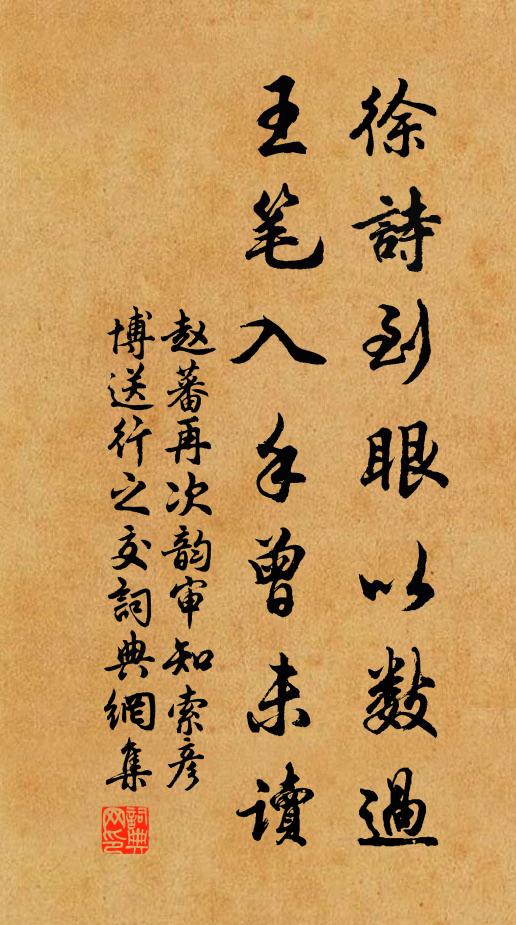 徐詩到眼以数過
王笔入手曾未讀
赵蕃再次韵审知索彦
博送行之文詞典網集
詞典网印